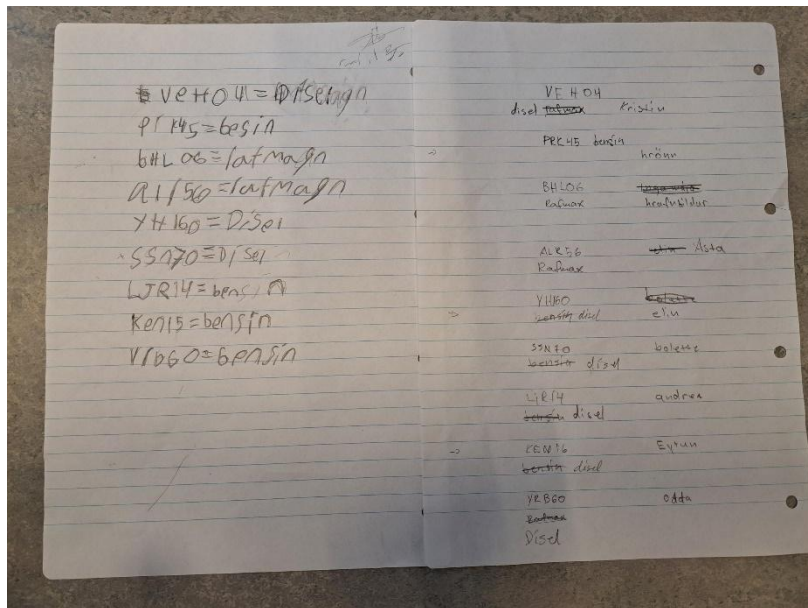 VeHO4=Diselagn
PrK45=besin
bHL06=rafmagn
alr56=rafmagn
YH160=Disel
SSN70=Disel
LJR14=bensin
Ken15=bensin
Yrb60=bensin
VEH04
disel rafmax Kristin
PRK45 bensin
hrönn
BHL06
Rafmax hrafnhildur
ALR56 elin Ásta
Rafmax
YH60 bolette
bensin disel elin
SSN70 bolette
bensin disel
LJR14 andrea
bensin disel
KEN16 Eyrun
bensin disel
YRB60 odda
Rafmax
Disel